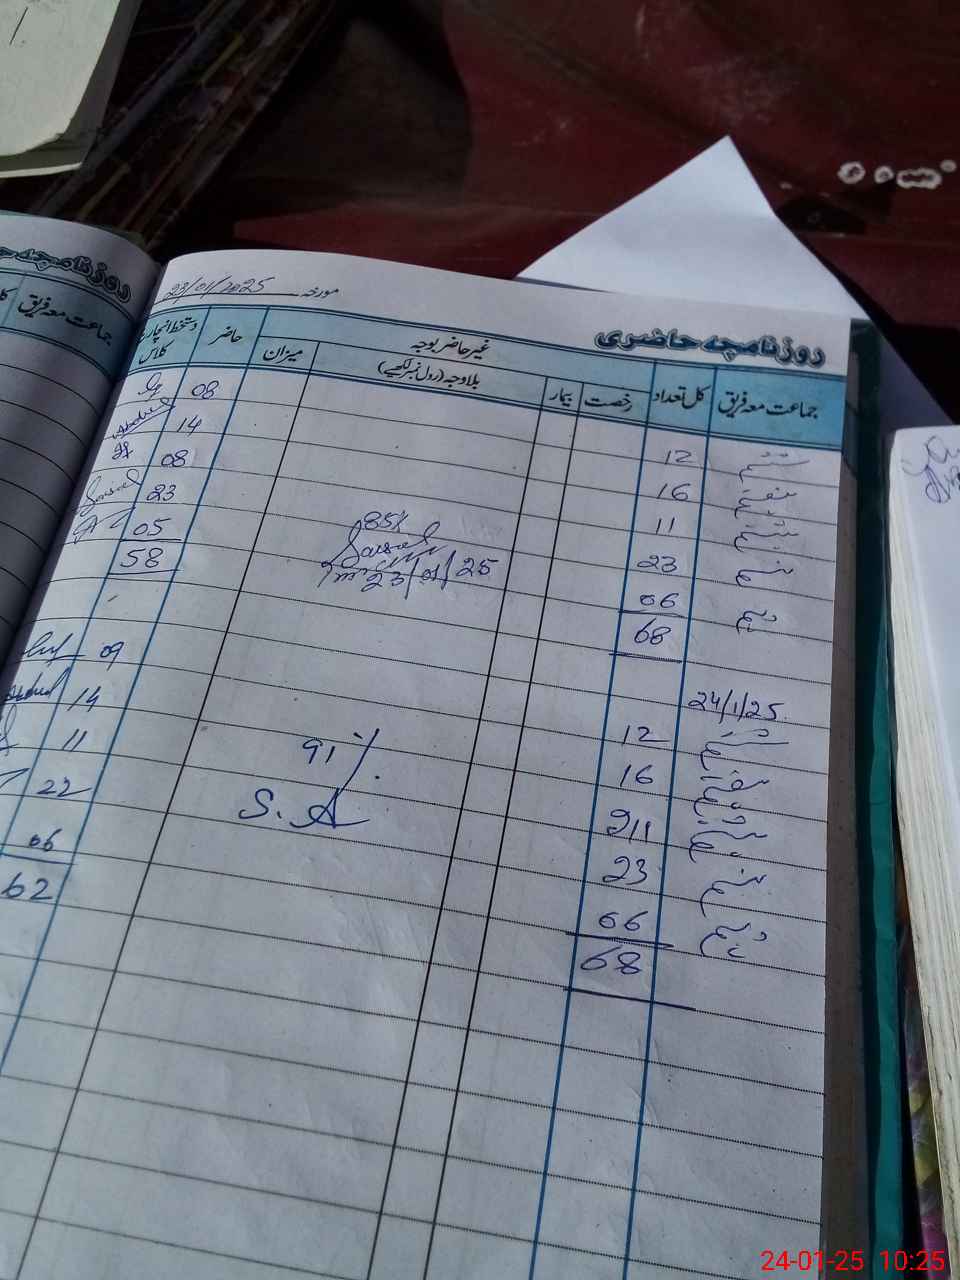 روزنامچہ حاضری
مورخہ 23/01/2025
جماعت معہ فریق کل تعداد رخصت بیمار غیر حاضر بوجہ بلاوجہ (رول نمبر لکھیے) میزان حاضر دستخط انچارج کلاس
ششم 12 08
ہفتم 16 14
ہشتم 11 08
نہم 23 23
دہم 06 05
68 58
85%
23/01/25
24/1/25
ششم 12 09
ہفتم 16 14
ہشتم 11 11
نہم 23 22
دہم 06 06
68 62
91%
S.A
روزنامچہ
جماعت معہ فریق
24-01-25 10:25